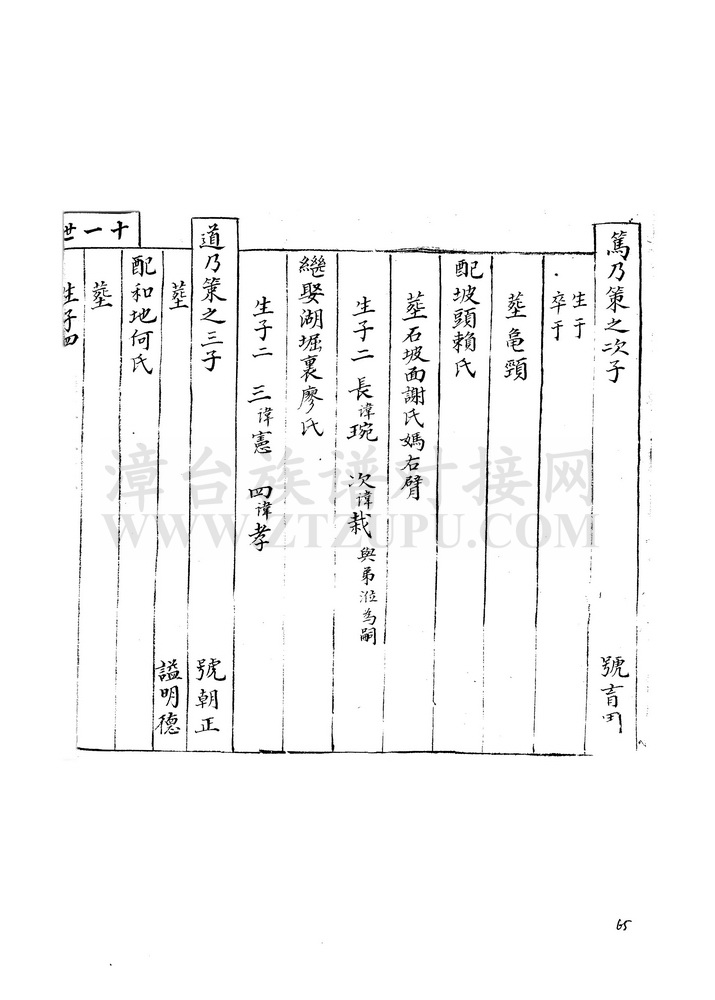 篤乃策之次子 號育田
生于
卒于
葬龟頸
配坡頭賴氏
葬石坡面謝氏媽右臂
生子二 長諱琬 次諱栽 與弟涖為嗣
繼娶湖堀裏廖氏
生子二 三諱憲 四諱孝
道乃策之三子 號朝正
葬 謚明德
配和地何氏
葬
生子四
十一世
漳台族谱对接网
WWW.ZTZUPU.COM
65